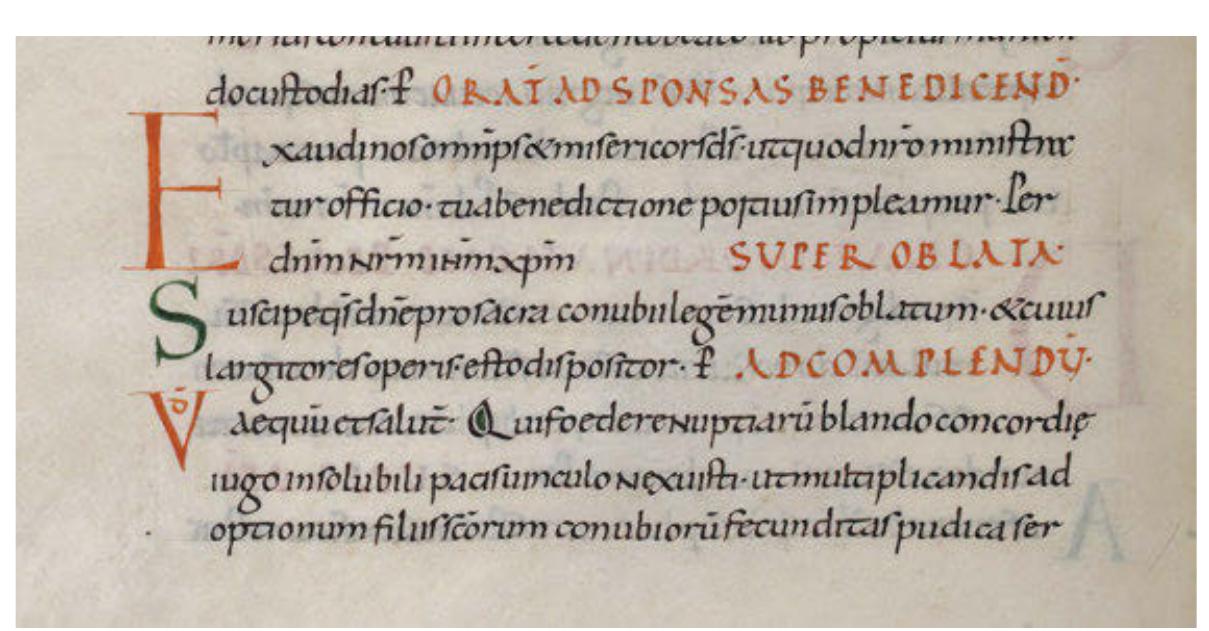 docustodias· p̄ ORAT̄ AD SPONSAS BENEDICEND̄·
Exaudi nos omnip̄s & misericors d̄s· ut quod nr̄o ministra
tur officio· tua benedictione potius impleamur· Per
dn̄m nr̄m ihm̄ xpm̄ SUPER OBLATA·
Suscipe q̄s dn̄e pro sacra conubii lege munus oblatum· & cuius
largitor es operis· esto dispositor· p̄ AD COMPLENDŪ·
VD aequū et salut̄· Qui foedere nuptiarū blando concordię
iugo insolubili pacis uinculo nexuisti· ut multiplicandis ad
optionum filiis sc̄orum conubiorū fecunditas pudica ser